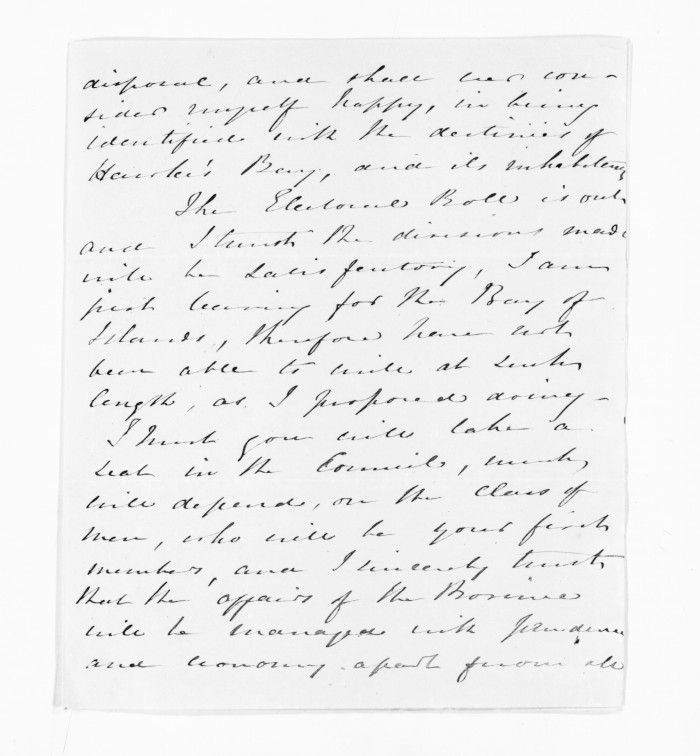 disposal, and shall ever con-
sider myself happy, in being
identified with the destinies of
Hawke's Bay, and its inhabitants
The Electoral Roll is out
and I trust the divisions made
will be satisfactory, I am
just leaving for the Bay of
Islands, therefore have not
been able to write at such
length, as I proposed doing -
I trust you will take a
seat in the Council, much
will depend, on the class of
men, who will be your first
members, and I sincerely trust
that the affairs of the Province
will be managed with prudence
and economy apart from all